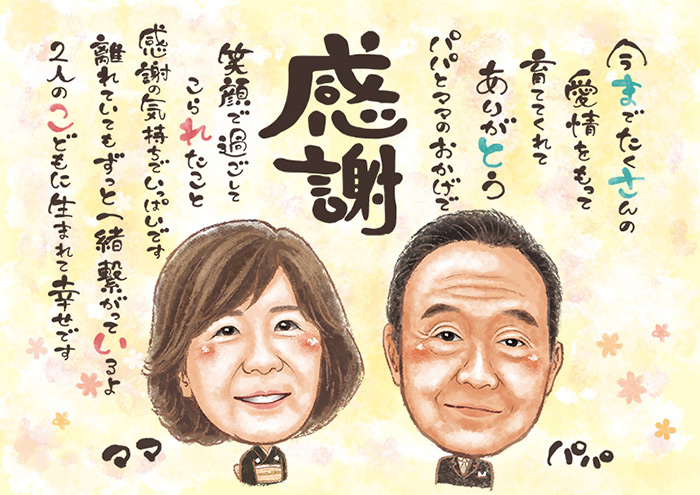 今までたくさんの
愛情をもって
育ててくれて
ありがとう
パパとママのおかげで
感謝
笑顔で過ごして
こられたこと
感謝の気持ちでいっぱいです
離れていてもずっと一緒繋がっているよ
2人のこどもに生まれて幸せです
ママ
パパ